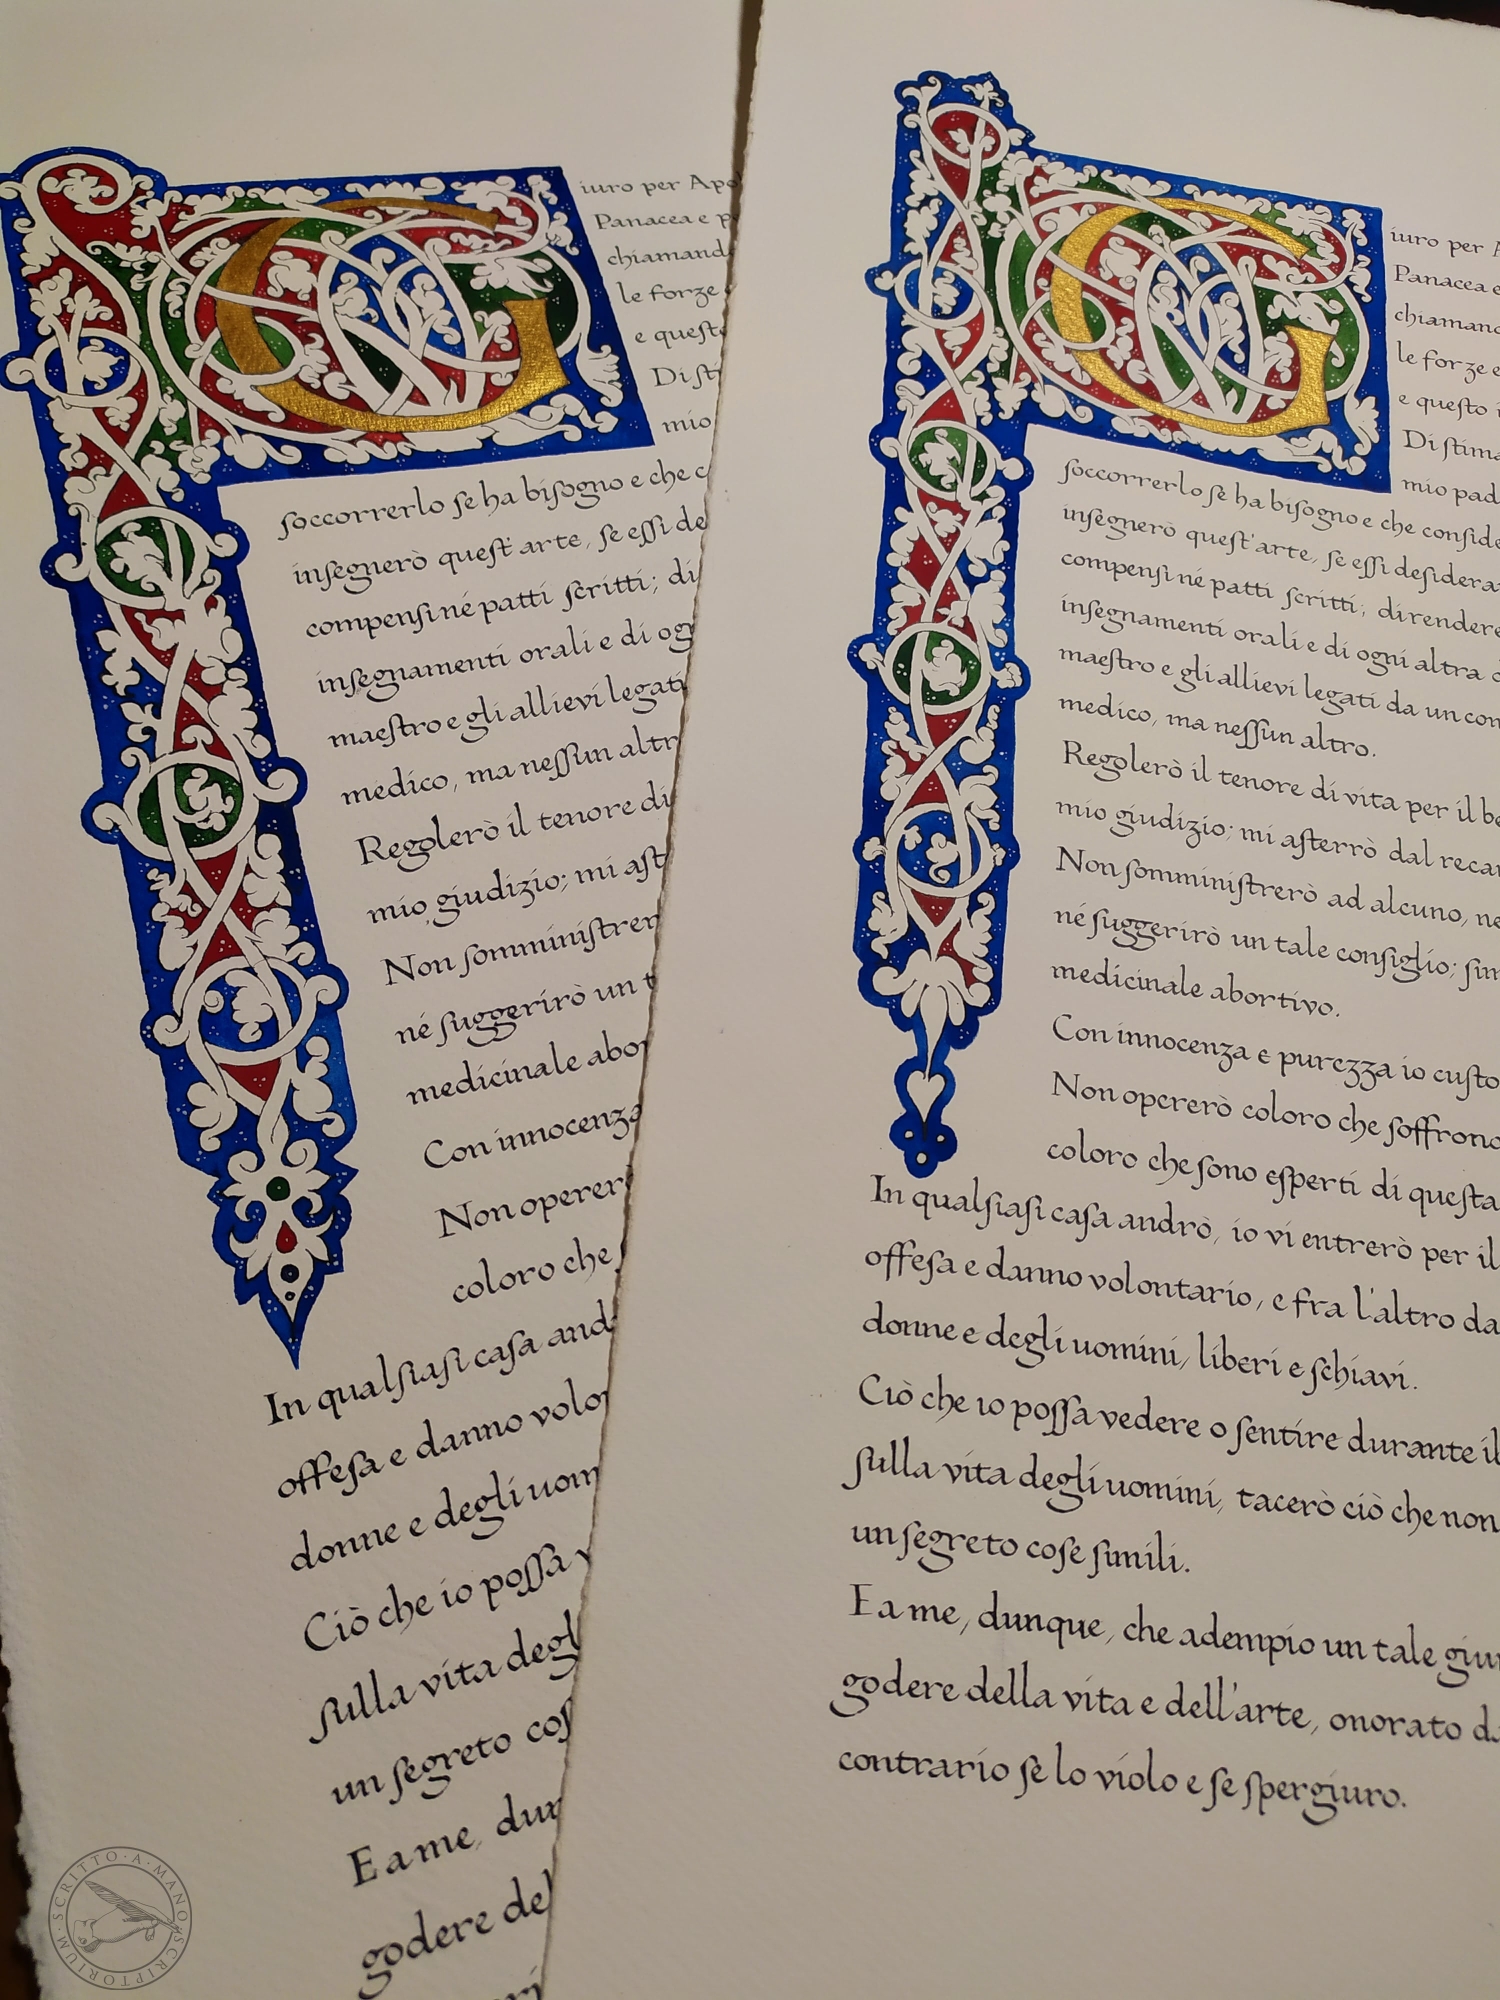 G
iuro per
Panacea e
chiamand
le forze
e questo
Di sti
mio
soccorrerlo se ha bisogno e che c
insegnerò quest'arte, se essi de
compensi né patti scritti; di
insegnamenti orali e di og
maestro e gli allievi legati
medico, ma nessun altr
Regolerò il tenore di
mio giudizio; mi ast
Non somministrer
né suggerirò un t
medicinale abor
Con innocenza
Non operer
coloro che
In qualsiasi casa and
offesa e danno volo
donne e degli uom
Ciò che io possa v
sulla vita degl
un segreto cos
E a me, dun
godere del
G
iuro per
Panacea e
chiamand
le forze e
e questo
Di stima
mio pad
soccorrerlo se ha bisogno e che conside
insegnerò quest'arte, se essi desidera
compensi né patti scritti; di rendere
insegnamenti orali e di ogni altra
maestro e gli allievi legati da un con
medico, ma nessun altro.
Regolerò il tenore di vita per il be
mio giudizio; mi asterrò dal recar
Non somministrerò ad alcuno, ne
né suggerirò un tale consiglio; sim
medicinale abortivo.
Con innocenza e purezza io custo
Non opererò coloro che soffrono
coloro che sono esperti di questa
In qualsiasi casa andrò, io vi entrerò per il
offesa e danno volontario, e fra l'altro da
donne e degli uomini, liberi e schiavi.
Ciò che io possa vedere o sentire durante il
sulla vita degli uomini, tacerò ciò che non
un segreto cose simili.
E a me, dunque, che adempio un tale giur
godere della vita e dell'arte, onorato da
contrario se lo violo e se spergiuro.
SCRITTO · A · MANO · SCRIPTORIUM ·